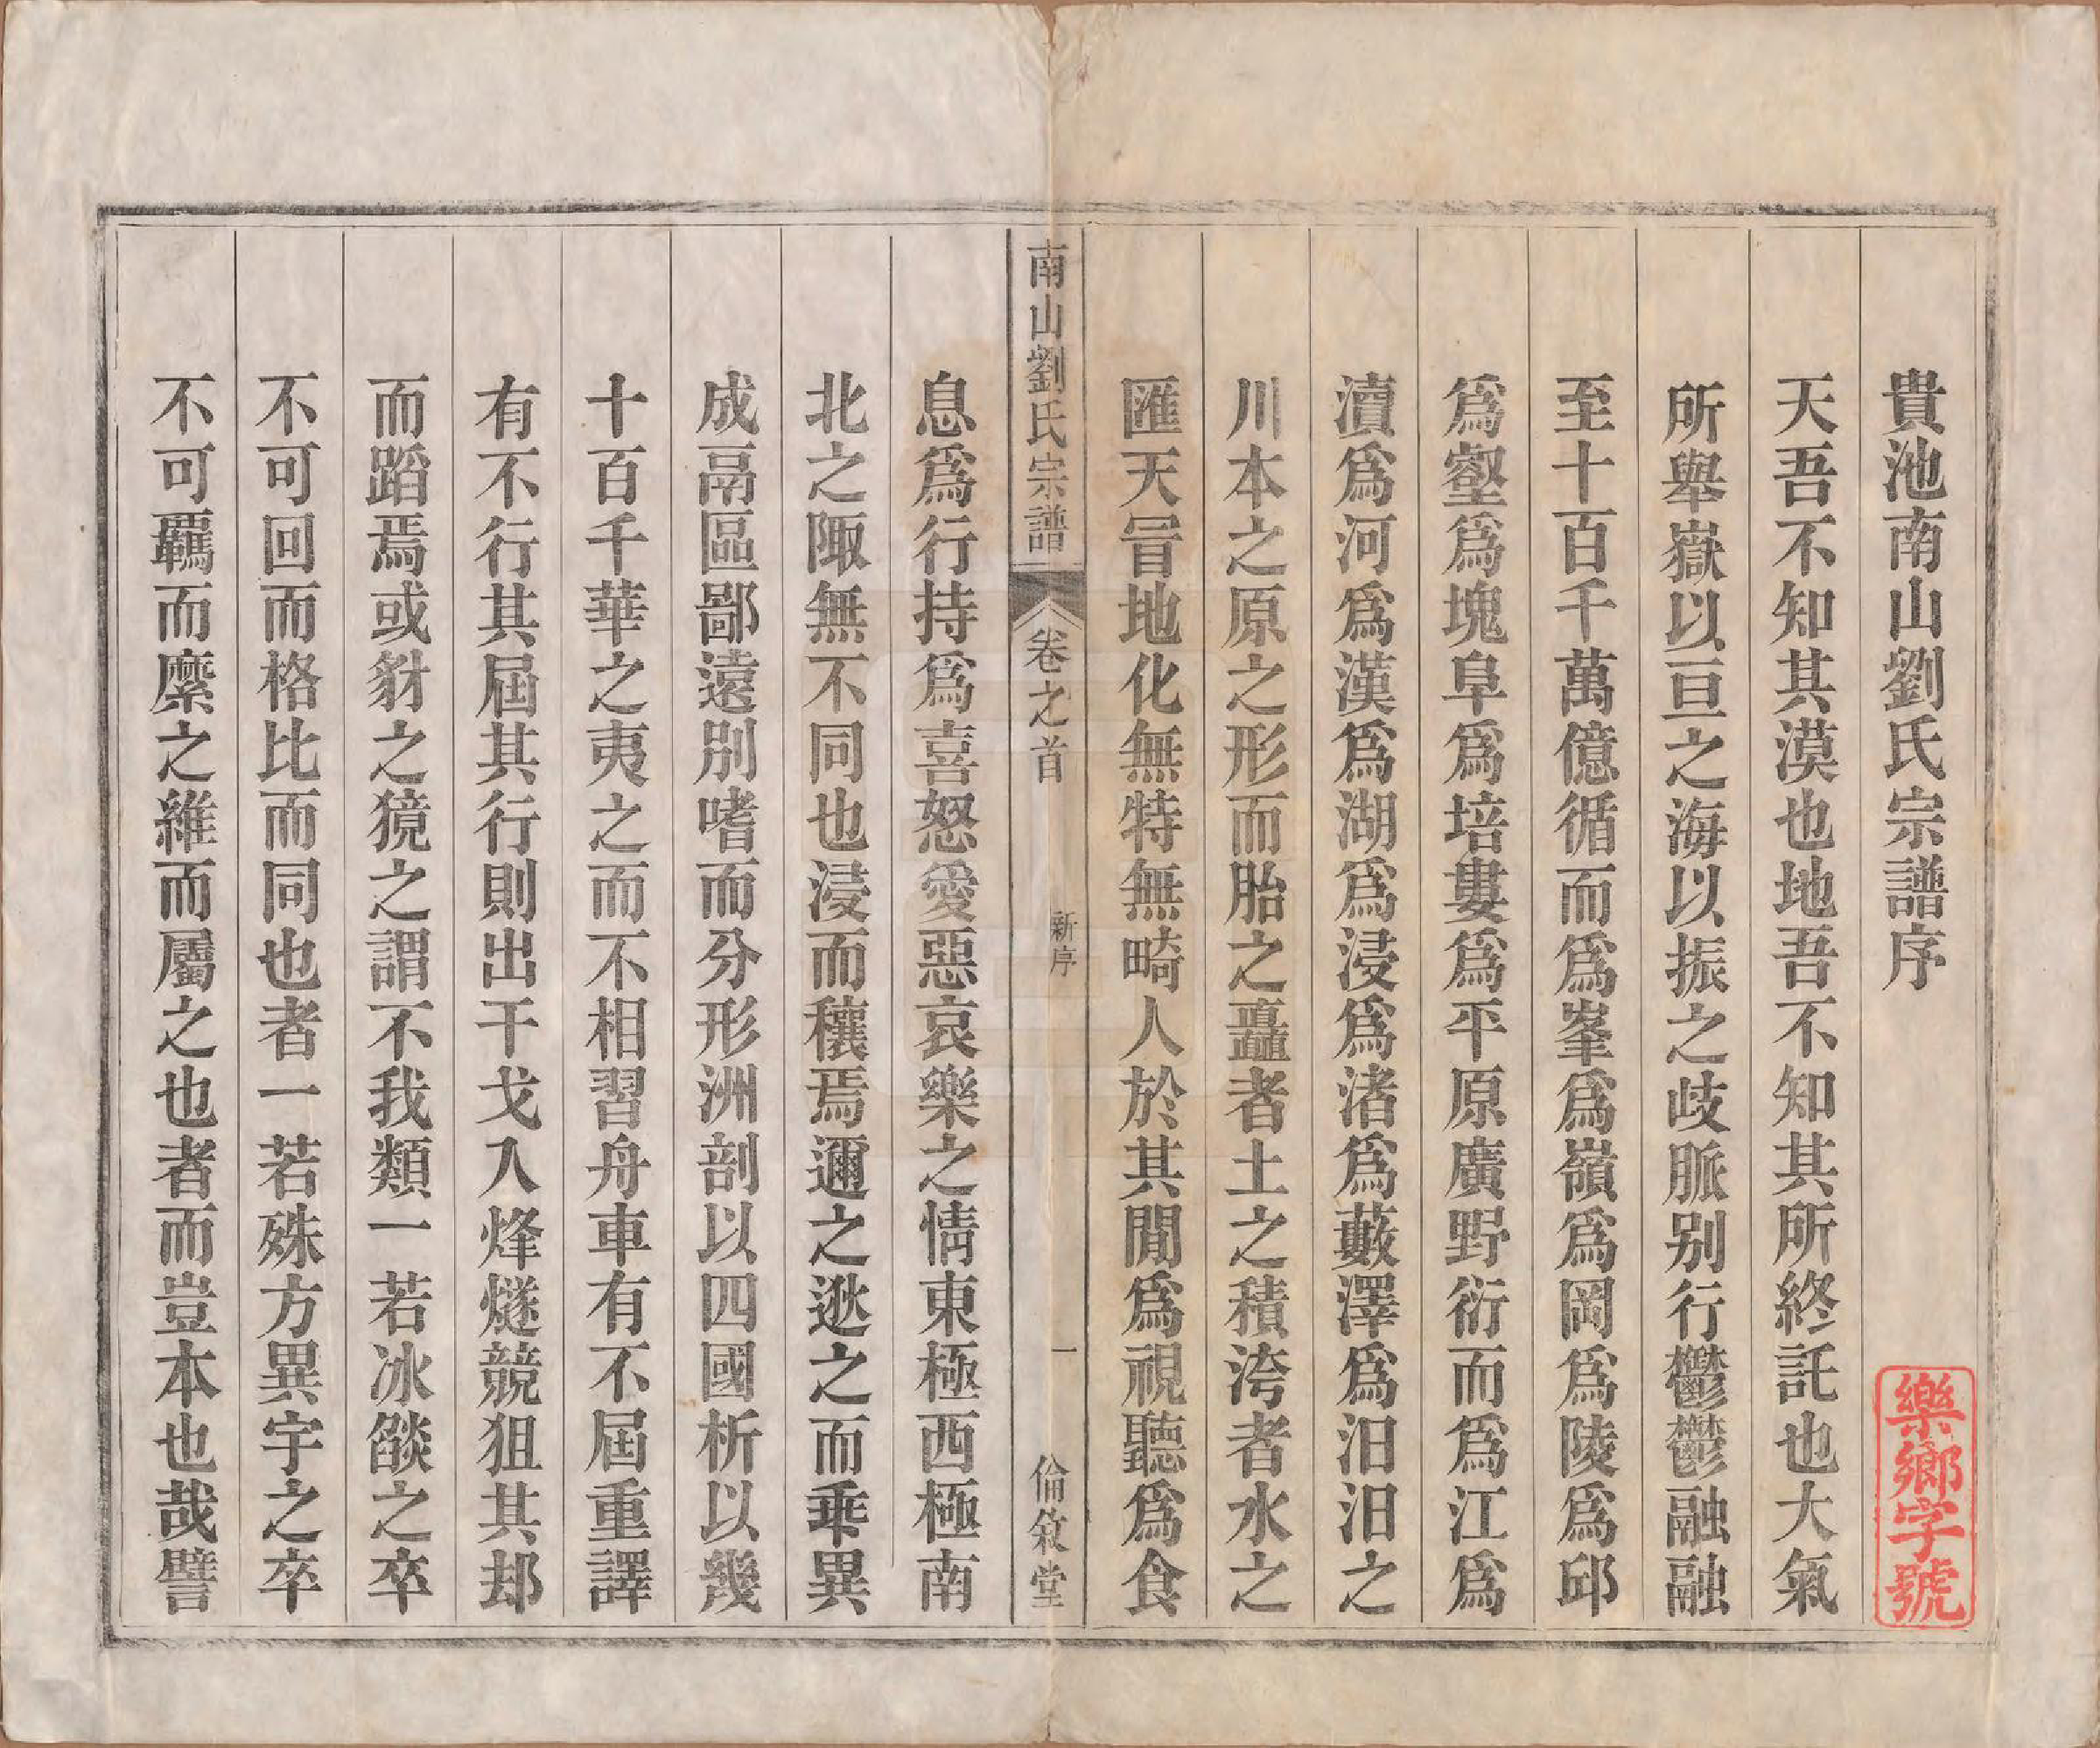 貴池南山劉氏宗譜序
樂鄉字號
天吾不知其漠也地吾不知其所終託也大氣
所舉嶽以亘之海以振之歧脈別行鬱鬱融融
至十百千萬億循而爲峯爲嶺爲岡爲陵爲邱
爲壑爲塊阜爲培塿爲平原廣野衍而爲江爲
瀆爲河爲漢爲湖爲浸爲渚爲藪澤爲汨汨之
川本之原之形而胎之矗者土之積洿者水之
匯天冒地化無特無畸人於其閒爲視聽爲食
南山劉氏宗譜
卷之首
新序
一
倫敘堂
息爲行持爲喜怒愛惡哀樂之情東極西極南
北之陬無不同也浸而穰焉邇之逖之而乖異
成鬲區鄙遠別嗜而分形洲剖以四國析以幾
十百千華之夷之而不相習舟車有不屆重譯
有不行其屆其行則出干戈入烽燧競狙其刦
而蹈焉或豺之獍之謂不我類一若冰燄之卒
不可回而格比而同也者一若殊方異宇之卒
不可羈而縻之維而屬之也者而豈本也哉譬